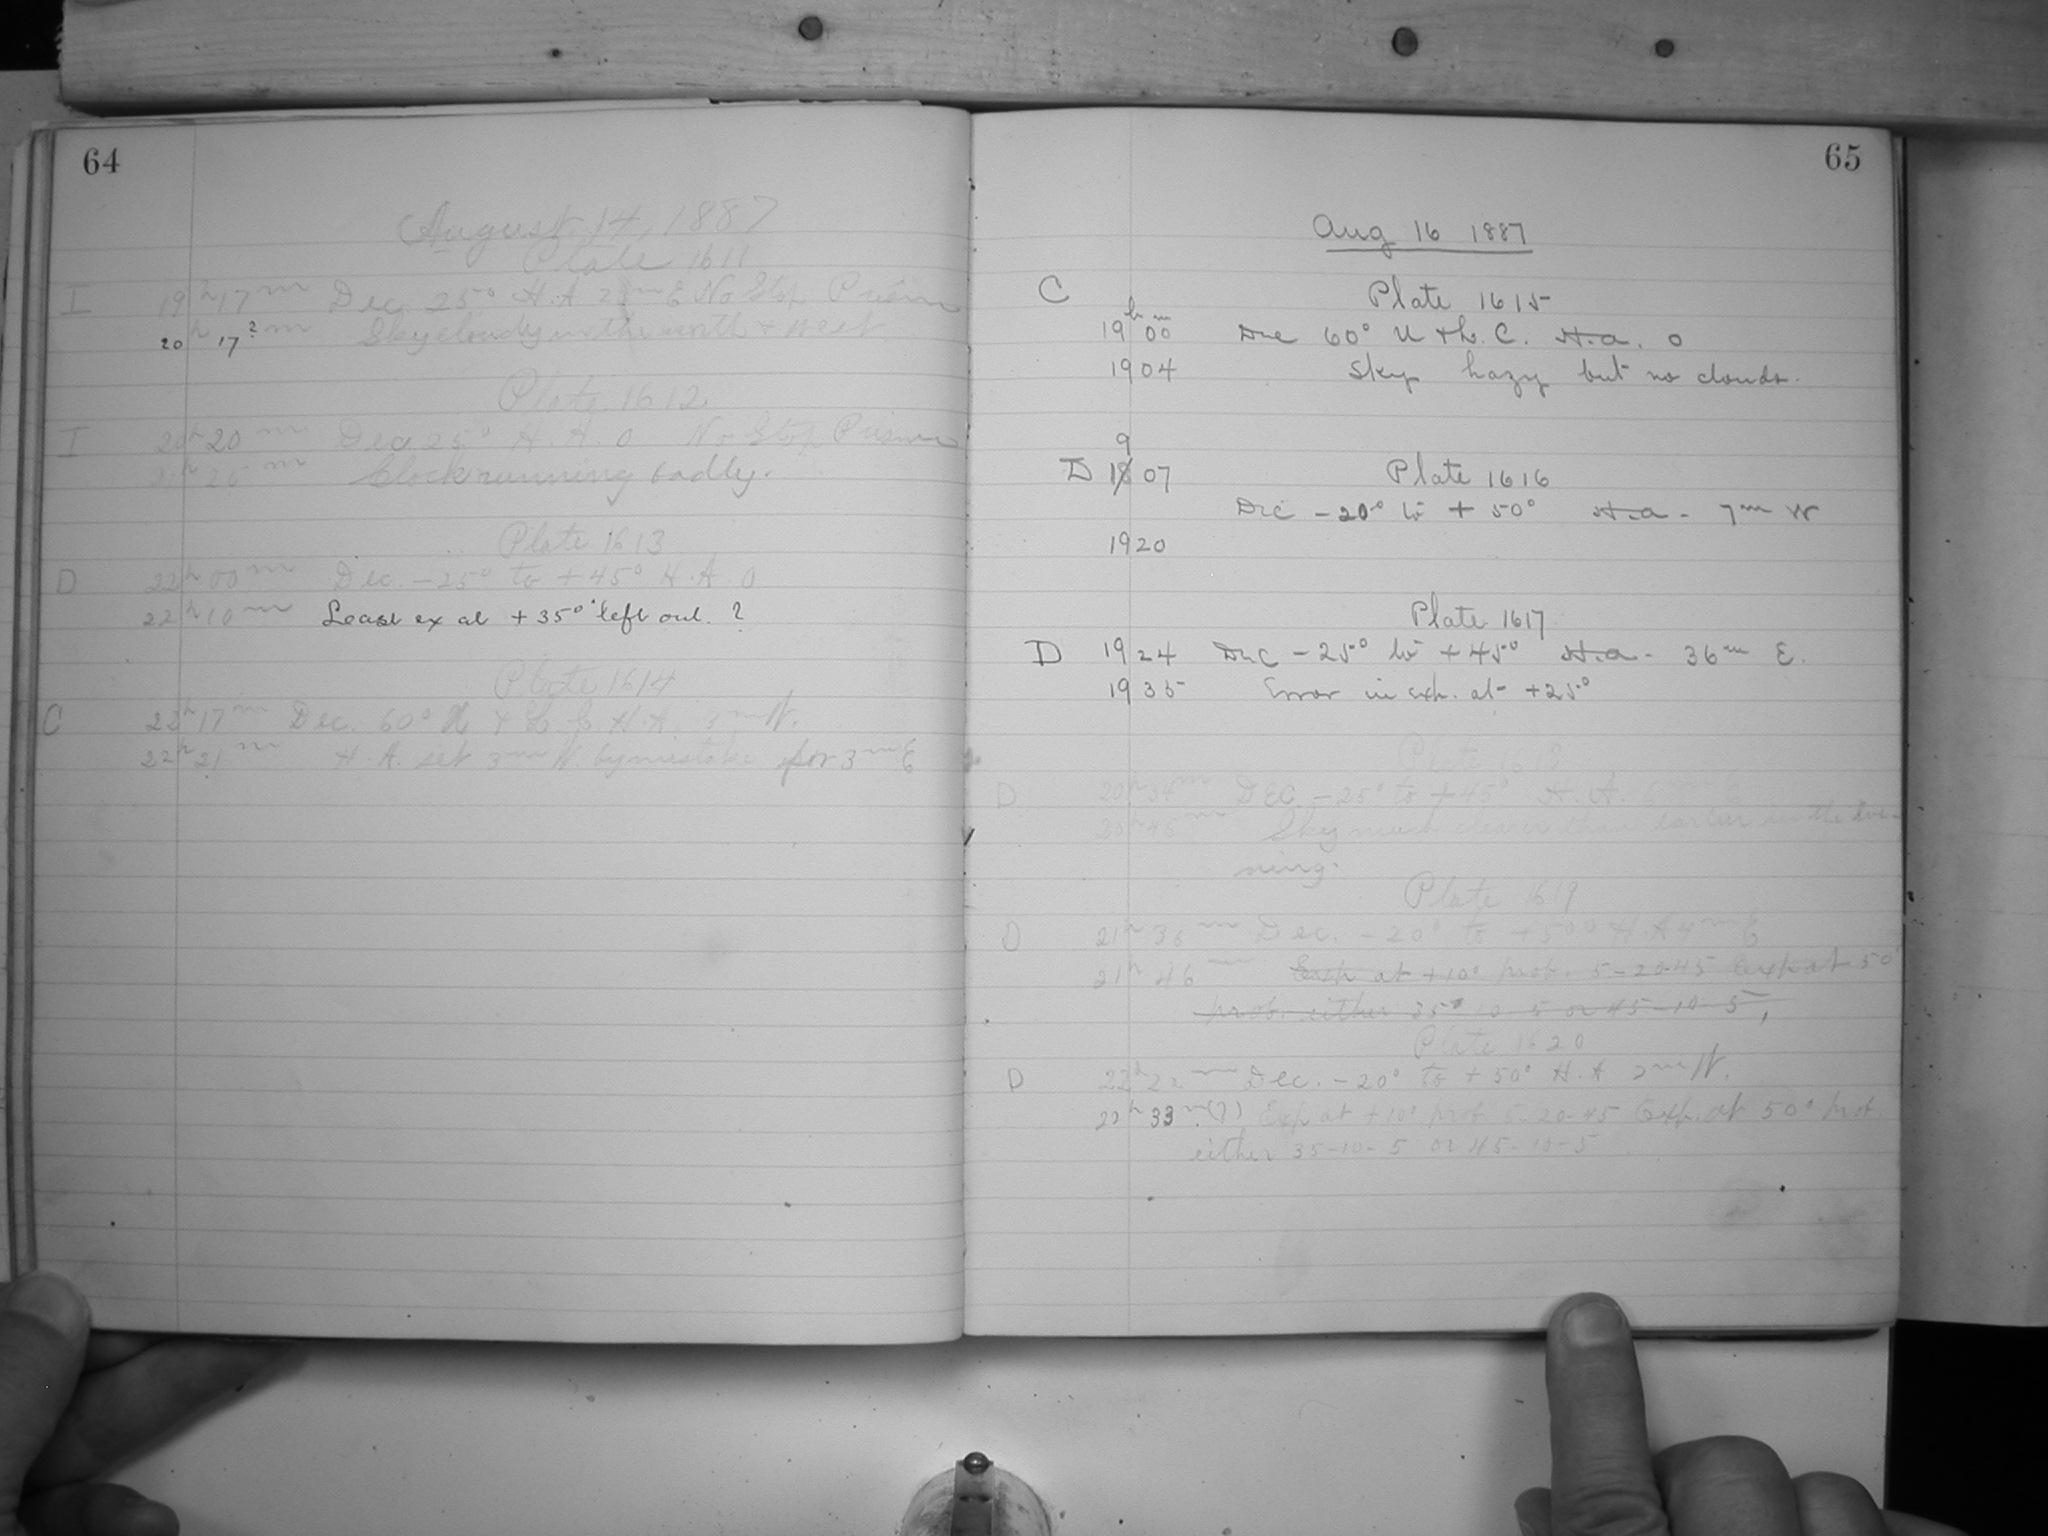 64
August 14, 1887
Plate 1611
I 19h 17m Dec. 25° H.A. m E No Stop Prism
20h 17?m Sky cloudy in the north & west
Plate 1612
I 20h 20m Dec 25° H.A. 0 No Stop Prism
21h 26m Clock running badly.
Plate 1613
D 22h 00m Dec. -25° to +45° H.A. 0
22h 10m Least ex at +35° left out. ?
Plate 1614
C 22h 17m Dec. 60° U & L. C H.A. 3m W.
22h 21m H.A. set 3m W. by mistake for 3m E
65
Aug 16 1887
C Plate 1615
19h 00m Dec 60° U & L. C. H.a. 0
19 04 Sky hazy but no clouds.
9
D 18 07 Plate 1616
Dec -20° to +50° H.a - 7m W
19 20
Plate 1617
D 19 24 Dec -25° to +45° H.a - 36m E.
19 35 Error in exp. at +25°
Plate 1618
D 20h 34m DEC. -25° to +45° H.A. 6m E
20h 45m Sky much clearer than earlier in the eve-
ning.
Plate 1619
D 21h 36m Dec. -20° to +50° H.A 4m E
21h 46m Exp at +10° prob. 5-20-45 Exp at 50°
prob. either 35-10-5 or 45-10-5,
Plate 1620
D 22h 22m Dec. -20° to +50° H.A 2m W.
22h 33m(?) Exp at +10° prob 5-20-45 Exp. at 50° prob.
either 35-10-5 or 45-10-5